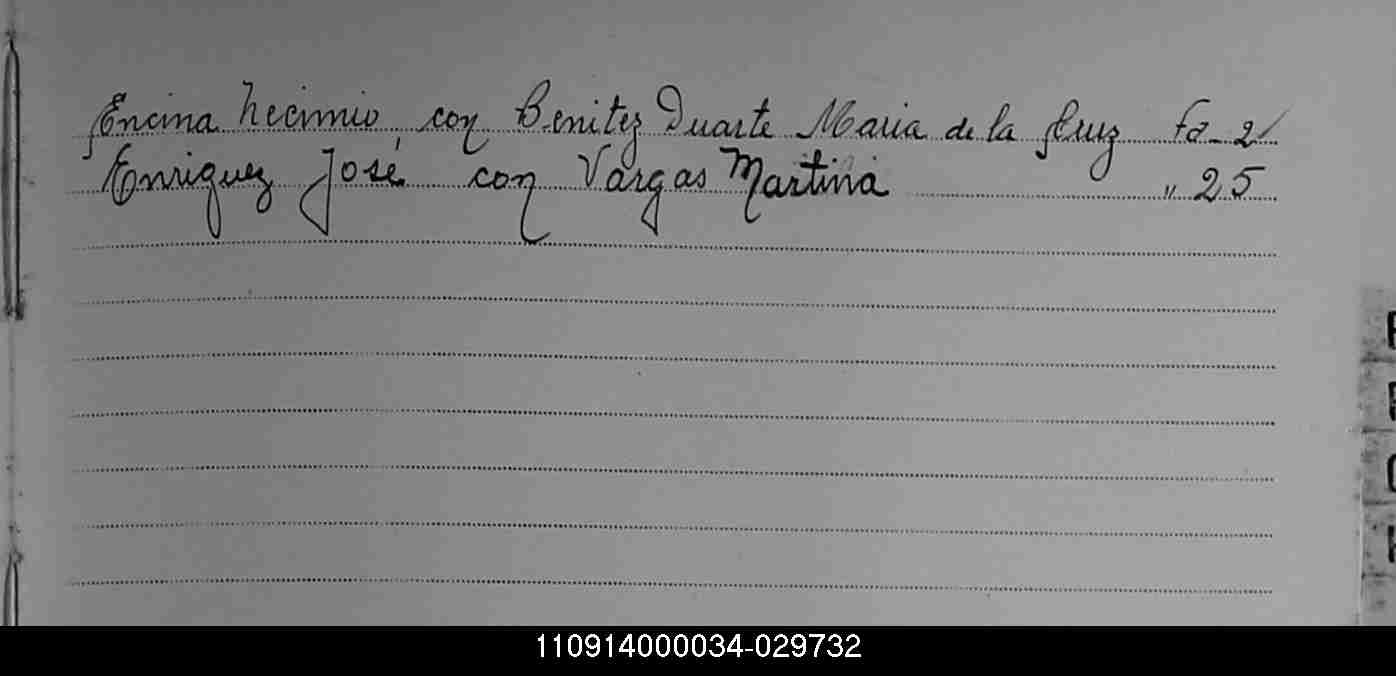 Encina Necimio con Benitez Duarte Maria de la Cruz fo_ 2
Enriquez José con Vargas Martina " 25
110914000034-029732